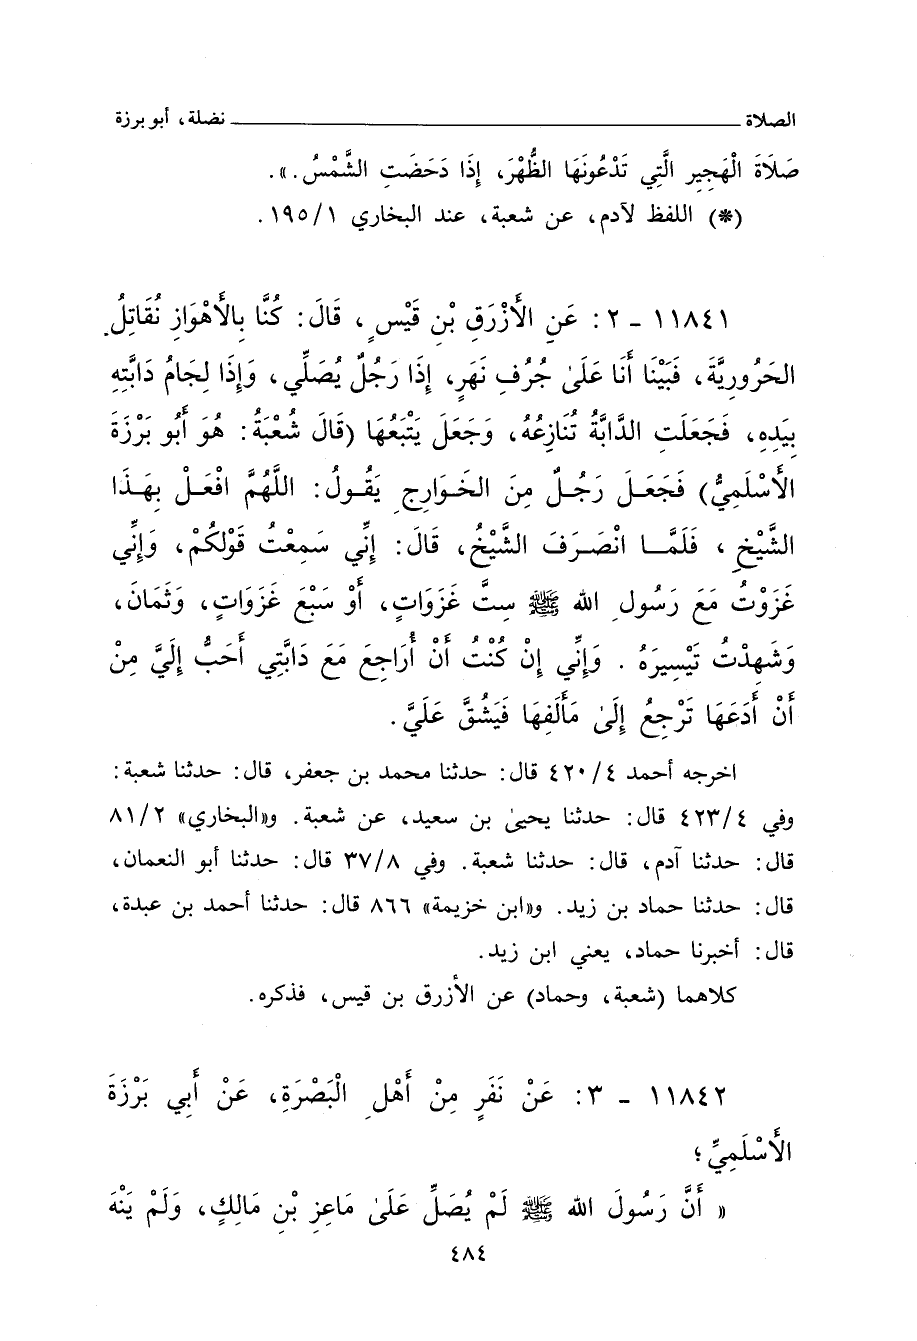 الصلاة ــــــــــــــــــــ نضلة، أبو برزة
صَلَاةَ الْهَجِيرِ الَّتِي تَدْعُونَهَا الظُّهْرَ، إِذَا دَحَضَتِ الشَّمْسُ.».
(*) اللفظ لآدم، عن شعبة، عند البخاري ١/١٩٥.
١١٨٤١ - ٢: عَنِ الأَزْرَقِ بْنِ قَيْسٍ، قَالَ: كُنَّا بِالأَهْوَازِ نُقَاتِلُ
الحَرُورِيَّةَ، فَبَيْنَا أَنَا عَلَىٰ جُرُفِ نَهَرٍ، إِذَا رَجُلٌ يُصَلِّي، وَإِذَا لِجَامُ دَابَّتِهِ
بِيَدِهِ، فَجَعَلَتِ الدَّابَّةُ تُنَازِعُهُ، وَجَعَلَ يَتْبَعُهَا (قَالَ شُعْبَةُ: هُوَ أَبُو بَرْزَةَ
الأَسْلَمِيُّ) فَجَعَلَ رَجُلٌ مِنَ الخَوَارِجِ يَقُولُ: اللَّهُمَّ افْعَلْ بِهَذَا
الشَّيْخِ، فَلَمَّا انْصَرَفَ الشَّيْخُ، قَالَ: إِنِّي سَمِعْتُ قَوْلَكُمْ، وَإِنِّي
غَزَوْتُ مَعَ رَسُولِ الله ﷺ سِتَّ غَزَوَاتٍ، أَوْ سَبْعَ غَزَوَاتٍ، وَثَمَانَ،
وَشَهِدْتُ تَيْسِيرَهُ. وَإِنِّي إِنْ كُنْتُ أَنْ أُرَاجِعَ مَعَ دَابَّتِي أَحَبُّ إِلَيَّ مِنْ
أَنْ أَدَعَهَا تَرْجِعُ إِلَىٰ مَأْلَفِهَا فَيَشُقَّ عَلَيَّ.
اخرجه أحمد ٤/٤٢٠ قال: حدثنا محمد بن جعفر، قال: حدثنا شعبة:
وفي ٤/٤٢٣ قال: حدثنا يحيىٰ بن سعيد، عن شعبة. و«البخاري» ٢/٨١
قال: حدثنا آدم، قال: حدثنا شعبة. وفي ٨/٣٧ قال: حدثنا أبو النعمان،
قال: حدثنا حماد بن زيد. و«ابن خزيمة» ٨٦٦ قال: حدثنا أحمد بن عبدة،
قال: أخبرنا حماد، يعني ابن زيد.
كلاهما (شعبة، وحماد) عن الأزرق بن قيس، فذكره.
١١٨٤٢ - ٣: عَنْ نَفَرٍ مِنْ أَهْلِ الْبَصْرَةِ، عَنْ أَبِي بَرْزَةَ
الأَسْلَمِيِّ؛
« أَنَّ رَسُولَ الله ﷺ لَمْ يُصَلِّ عَلَىٰ مَاعِزِ بْنِ مَالِكٍ، وَلَمْ يَنْهَ
٤٨٤